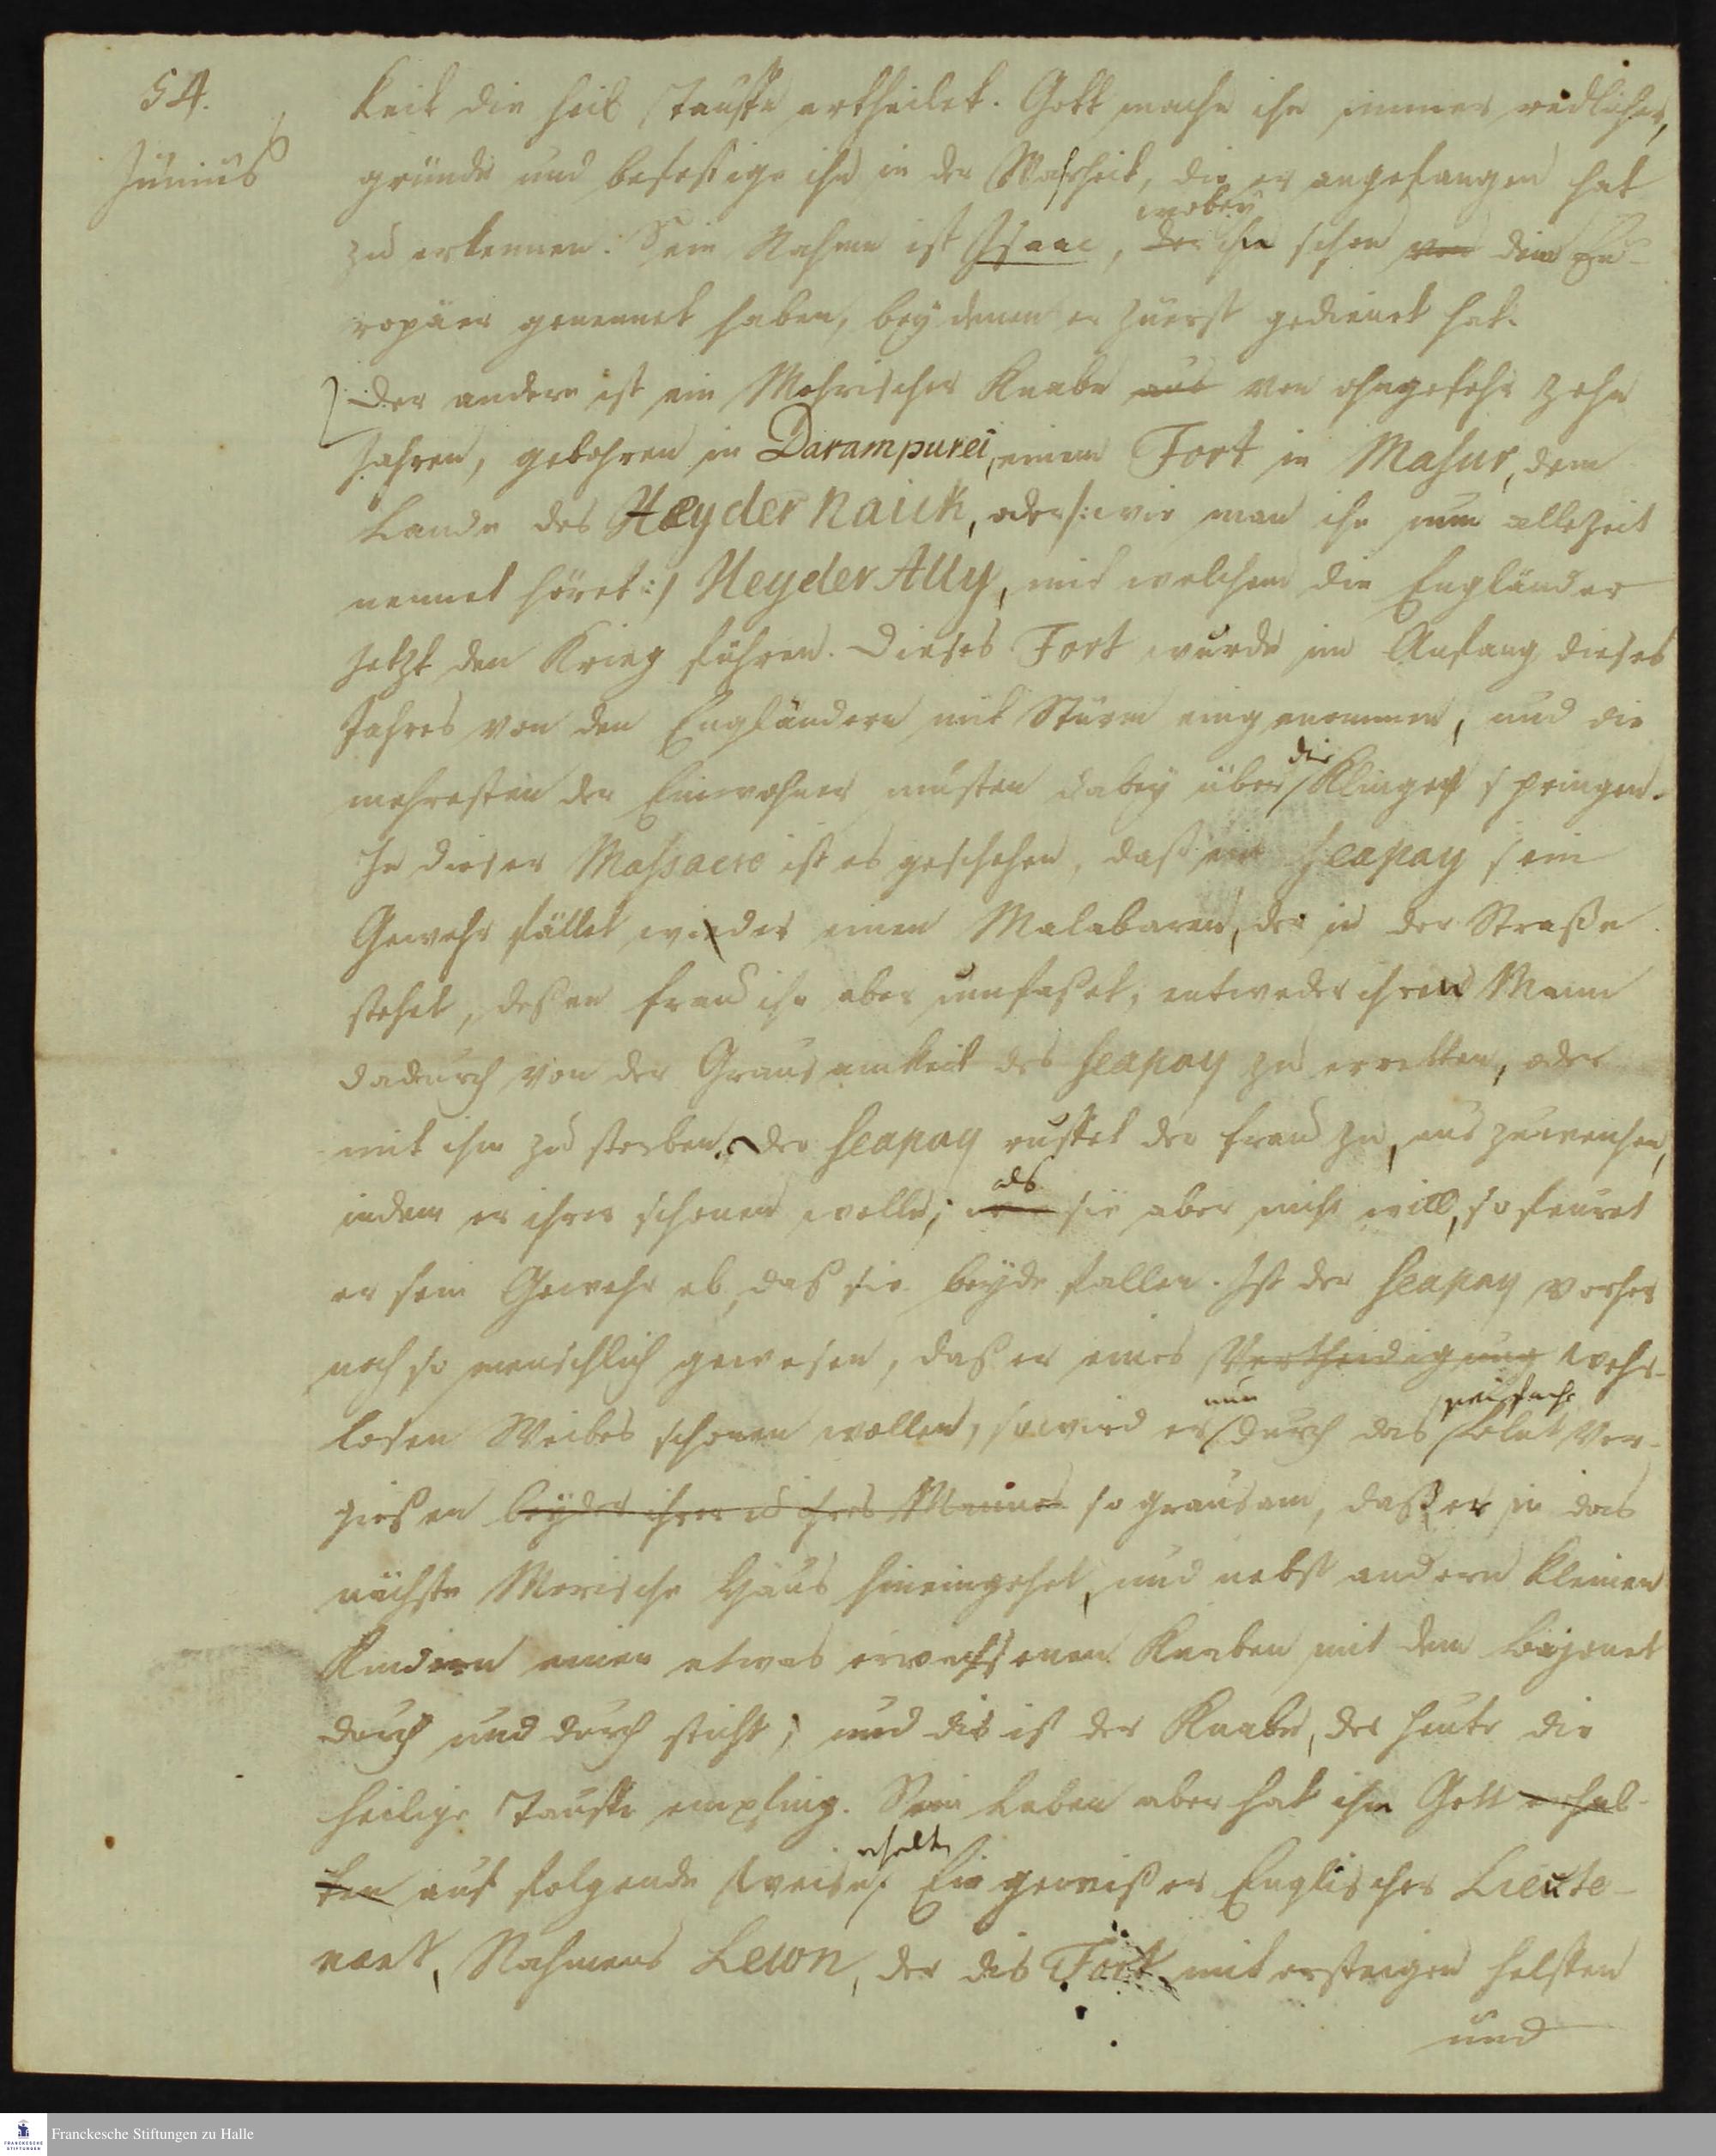 54.
Junius
keit die heil Tauffe ertheilet. Gott mache ihn immer redlicher,
gründe und befestige ihn in der Wahrheit, die er angefangen hat
wobey
zu erkennen. Sein Nahme ist Isaac, der ihn schon von die Eu-
ropäer genennet haben, bey denen er zuerst gedienet hat.
Der andere ist ein Mohrischer Knabe aus von ohngefehr zehn
Jahren, gebohren in Darampurei, einem Fort in Masur, dem
Lande des Heyder Naick, oder /: wie man ihn nun allezeit
nennet höret :/ Heyder Ally, mit welchem die Engländer
jetzt den Krieg führen. Dieses Fort wurde im Anfang dieses
Jahres von den Engländern mit Sturm eingenommen, und die
die
mehresten der Einwohner musten dabey über Klingen springen.
In dieser Massacre ist es geschehen, daß ein Seapay sein
Gewehr fället wieder einen Malabaren, der in der Straße
stehet, deßen Frau ihn aber umfaßet, entweder ihren Mann
dadurch von der Grausamkeit des Seapay zu erretten, oder
mit ihm zu sterben. Der Seapay ruffet der Frau zu, auszuweichen,
als
indem er ihrer schonen wolle; sie aber nicht will, so feuret
er sein Gewehr ab, daß sie beyde fallen. Ist der Seapay vorher
noch so menschlich gewesen, daß er eines Vertheidigung wehr-
nun
losen Weibes schonen wollen, so wird er durch das Blut Ver-
gießen beyder ihrer u ihres Mannes so grausam, daß er in das
nächste Morische Haus hineingehet, und nebst andern kleinen
Kindern einen etwas erwachsenen Knaben mit dem Bajonet
durch und durch sticht; und dis ist der Knabe, der heute die
heilige Tauffe empfing. Sein Leben aber hat ihm Gott erhal-
erhalten
ten auf folgende Weise: Ein gewißer Englischer Lieute-
nant, Nahmens Lewon, der dis Fort mit ersteigen helffen
und
Franckesche Stiftungen zu Halle